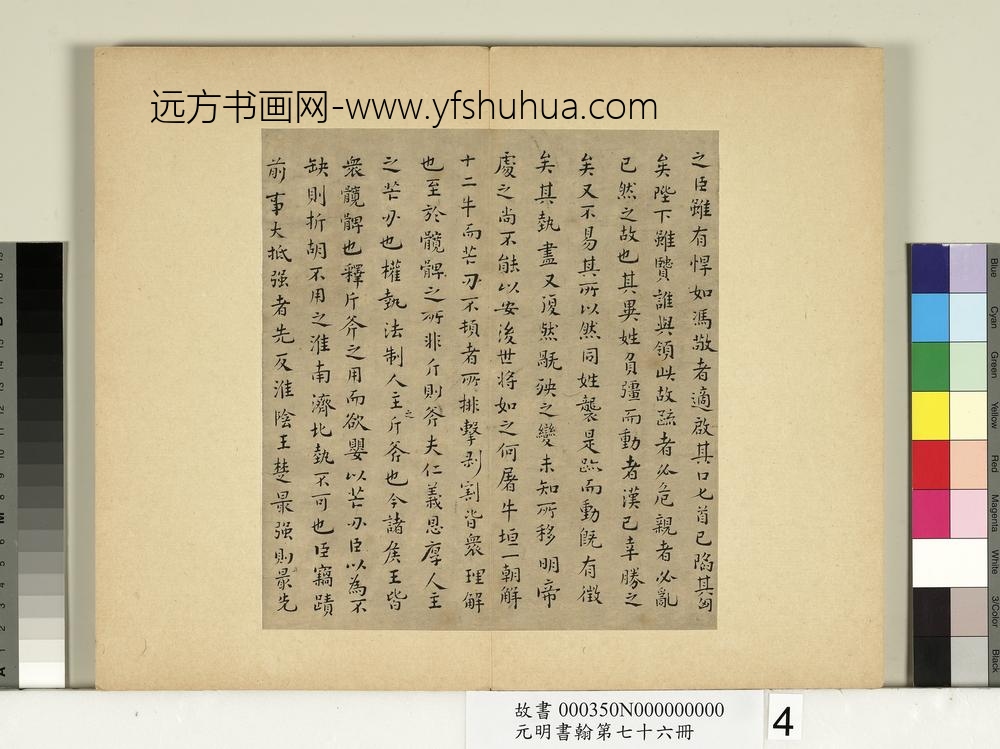 远方书画网-www.yfshuhua.com
之臣雖有悍如馮敬者適啟其口匕首已陷其匈
矣陛下雖賢誰與領此故疏者必危親者必亂
已然之故也其異姓負彊而動者漢已幸勝之
矣又不易其所以然同姓襲是跡而動旣有徵
矣其埶盡又復然旤殃之變未知所移明帝
處之尚不能以安後世將如之何屠牛垣一朝解
十二牛而芒刃不頓者所排擊剥割皆衆理解
也至於髖髀之所非斤則斧夫仁義恩厚人主
之芒刃也權埶法制人主之斤斧也今諸侯王皆
衆髖髀也釋斤斧之用而欲嬰以芒刃臣以為不
缺則折胡不用之淮南濟北埶不可也臣竊蹟
前事大抵强者先反淮陰王楚最强則最先
Blue
Cyan
Green
Yellow
Red
Magenta
White
3/Color
Black
故書 000350N000000000
元明書翰第七十六冊
4